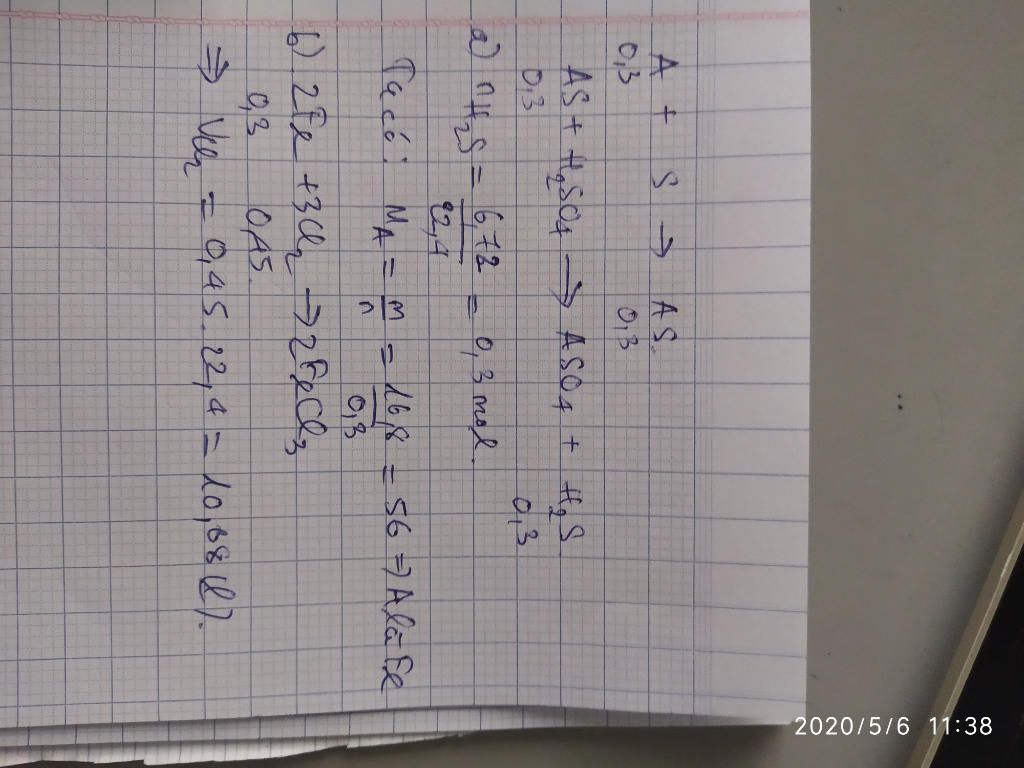 A + S → AS.
0,3 0,3
AS + H₂SO₄ → ASO₄ + H₂S
0,3 0,3
a) nH₂S = 6,72/22,4 = 0,3 mol.
Ta có: M_A = m/n = 16,8/0,3 = 56 => A là Fe
b) 2Fe + 3Cl₂ → 2FeCl₃
0,3 0,45.
=> VCl₂ = 0,45.22,4 = 10,08(l).
2020/5/6 11:38